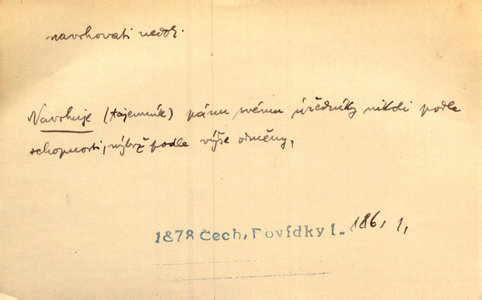 navrhovati nedok.
Navrhuje (tajemník) pánu svému úředníky nikdi podle
schopností, nýbrž podle výše odměny,
1878 Čech, Povídky I. 186, 1,